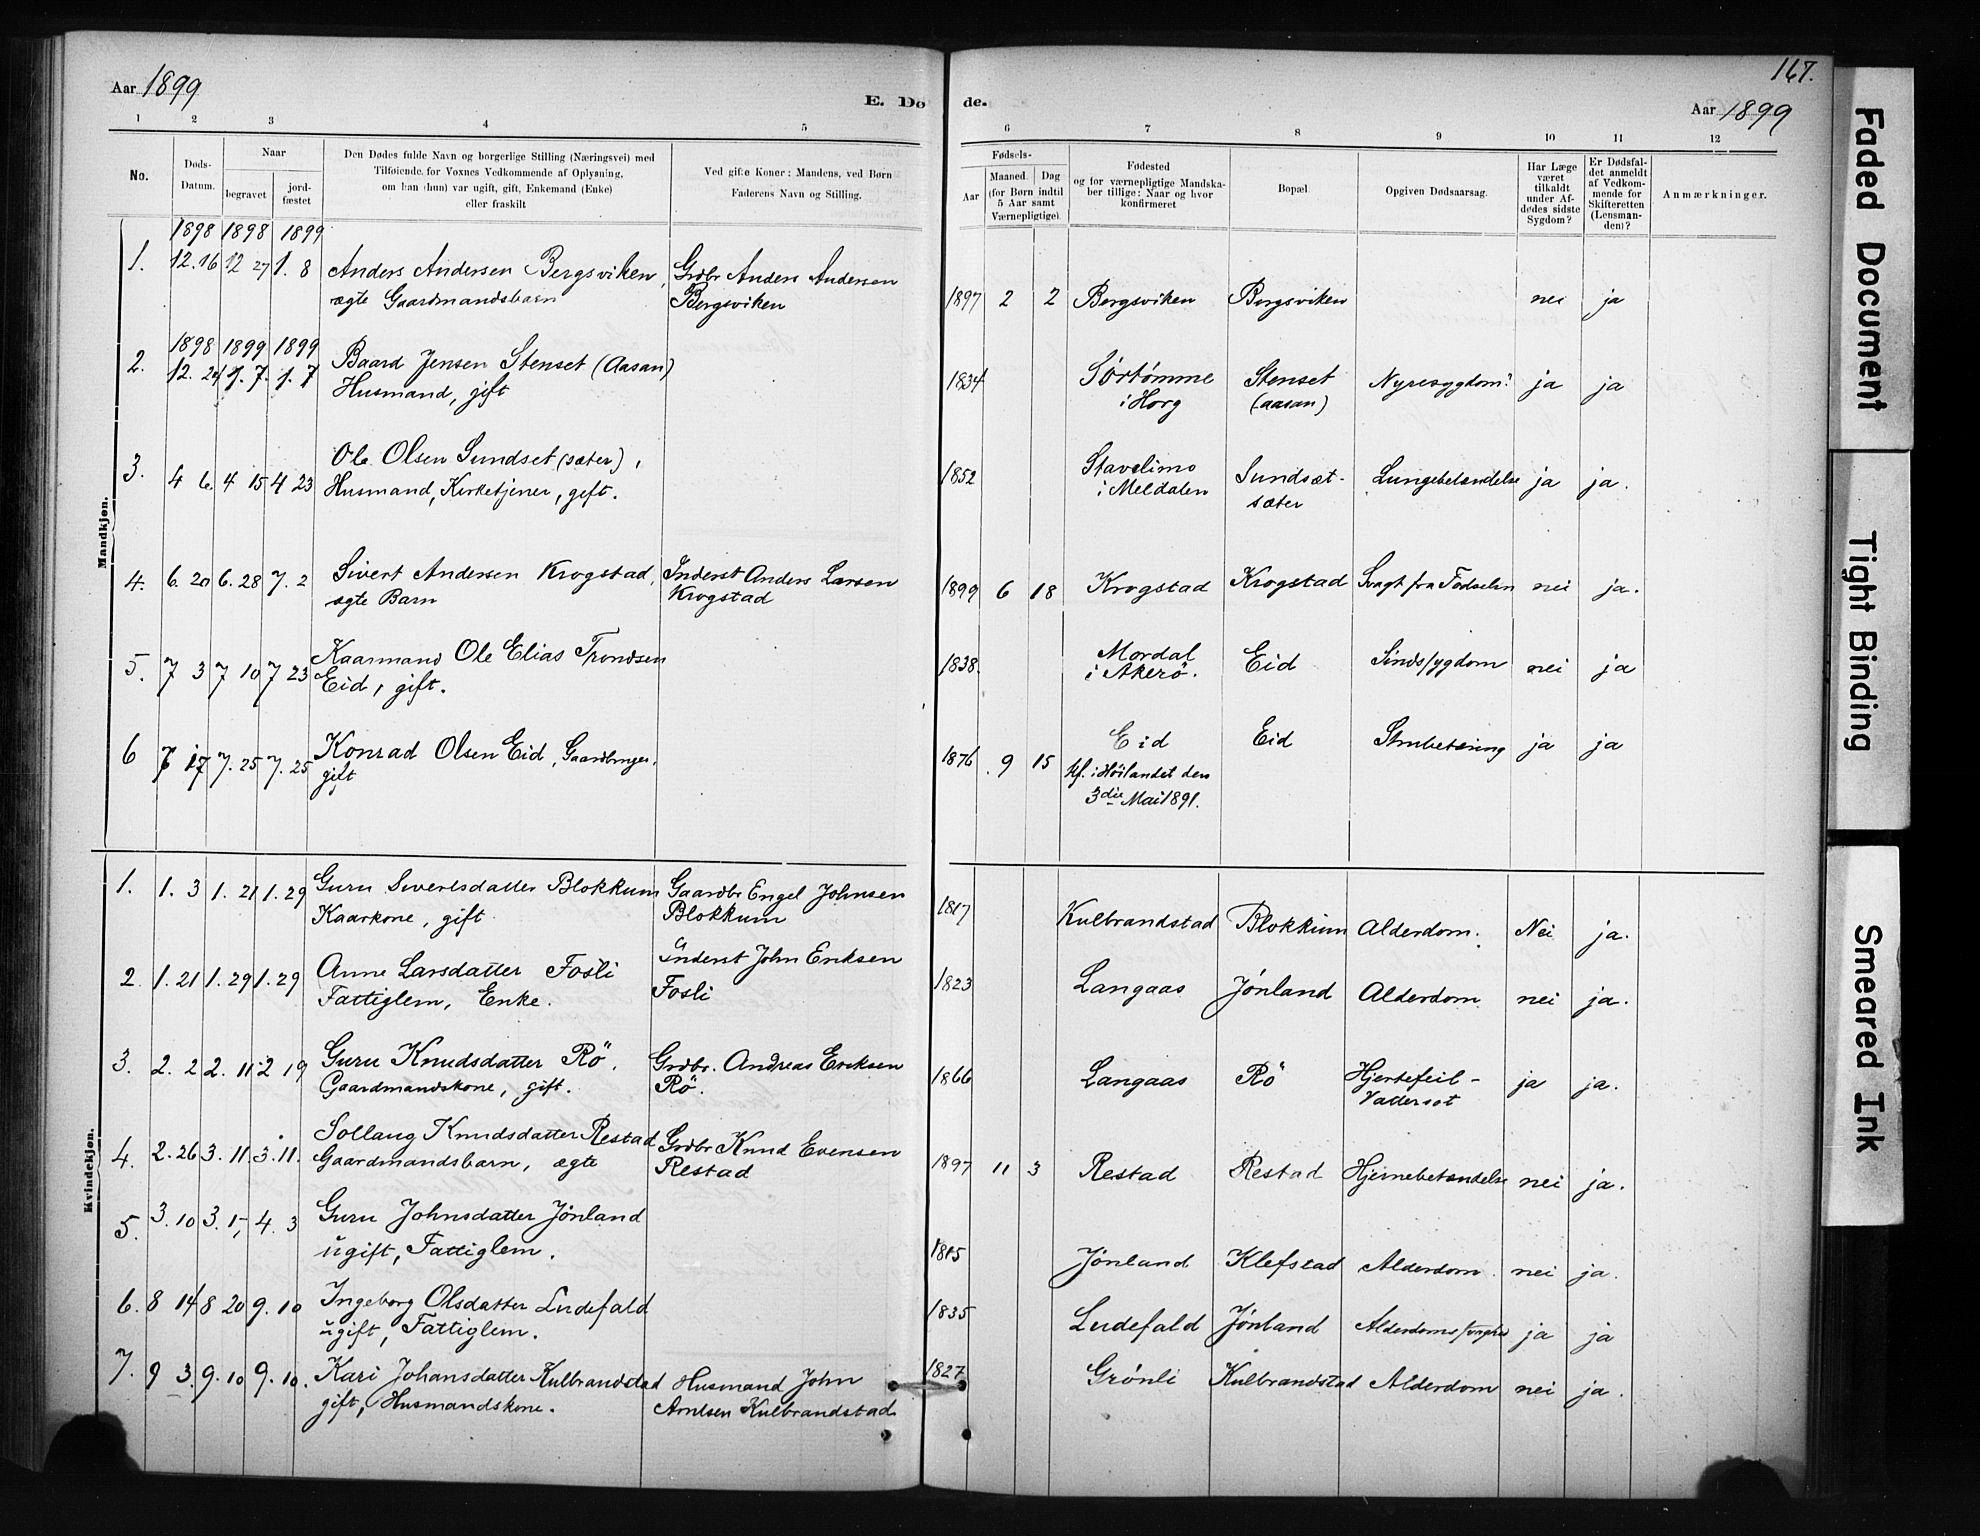 Aar 1899
E. Dø
de.
167.
Aar 1899
1 2 3 4 5
6 7 8 9 10 11 12
No.
Døds-
Datum.
Naar
begravet
jord-
fæstet
Den Dødes fulde Navn og borgerlige Stilling (Næringsvei) med
Tilføiende for Voxnes Vedkommende af Oplysning,
om han (hun) var ugift, gift, Enkemand (Enke)
eller fraskilt
Ved gifte Koner: Mandens, ved Børn
Faderens Navn og Stilling.
Fødsels-
Aar
Maaned Dag
(for Børn indtil
5 Aar samt
Værnepligtige).
Fødested
og for værnepligtige Mandska-
ber tillige: Naar og hvor
konfirmeret
Bopæl.
Opgiven Dødsaarsag.
Har Læge
været
tilkaldt
under Af-
dødes sidste
Sygdom?
Er Dødsfal-
det anmeldt
af Vedkom-
mende for
Skifteretten
(Lensman-
den)?
Anmærkninger.
Mandkjøn.
1898 1898 1899
1. 12.16 12 27 1. 8 Anders Andersen Bergsviken, Grdbr Anders Andersen
ægte Gaardmandsbarn Bergsviken
1897 2 2 Bergsviken Bergsviken nei ja
1898 1899 1899
2. 12. 24 1. 7. 1. 7 Baard Jensen Stenset (Aasan)
Husmand, gift
1834 Sörtömme Stenset Nyresygdom ja ja
i Horg (aasan)
3. 4 6. 4 15 4 23 Ole Olsen Sundset (sæter),
Husmand, Kirketjener, gift.
1852 Stavelimo Sundsæt- Lungebetændelse ja ja.
i Meldalen sæter
4. 6. 20 6. 28 7. 2 Sivert Andersen Krogstad, Inderst Anders Larsen
ægte Barn Krogstad
1899 6 18 Krogstad Krogstad Svagt fra Fødselen nei ja.
5. 7 3 7 10 7 23 Kaarmand Ole Elias Trondsen
Eid, gift.
1838. Mordal Eid Sindssygdom nei ja
i Akerö.
6 7 17 7. 25 7. 25 Konrad Olsen Eid, Gaardbruger,
gift
1876 9 15 Eid Eid ja ja
kf. i Höilandet den
3die Mai 1891.
Kvindekjøn.
1. 1. 3 1. 21 1. 29 Guru Sivertsdatter Blokkum Gaardbr Engel Johnsen
Kaarkone, gift Blokkum
1817 Kulbrandstad Blokkum Alderdom. Nei ja.
2. 1. 21 1. 29 1. 29 Anne Larsdatter Fosli Inderst John Eriksen
Fattiglem, Enke. Fosli
1823 Langaas Jönland Alderdom nei ja.
3. 2. 2 2. 11 2 19 Guru Knudsdatter Rö. Grdbr. Andreas Ericksen
Gaardmandskone, gift. Rö.
1866 Langaas Rö Hjertefeil - ja ja.
Vattersot
4. 2. 26 3. 11. 3. 11. Sollaug Knudsdatter Restad Grdbr Knud Evensen
Gaardmandsbarn, ægte Restad
1897 11 3 Restad Restad Hjernebetændelse nei ja.
5. 3. 10 3. 15 4. 3 Guru Johnsdatter Jönland
ugift, Fattiglem.
1815 Jönland Klefstad Alderdom. nei ja.
6. 8 14 8 20 9. 10 Ingeborg Olsdatter Ludefald
ugift, Fattiglem.
1835 Ludefald Jönland ja ja
7. 9 3. 9. 10 9. 10. Kari Johansdatter Kulbrandstad Husmand John
gift, Husmandskone. Arntsen Kulbrandstad
1827 Grönli Kulbrandstad Alderdom nei ja.
Faded Document
Tight Binding
Smeared Ink